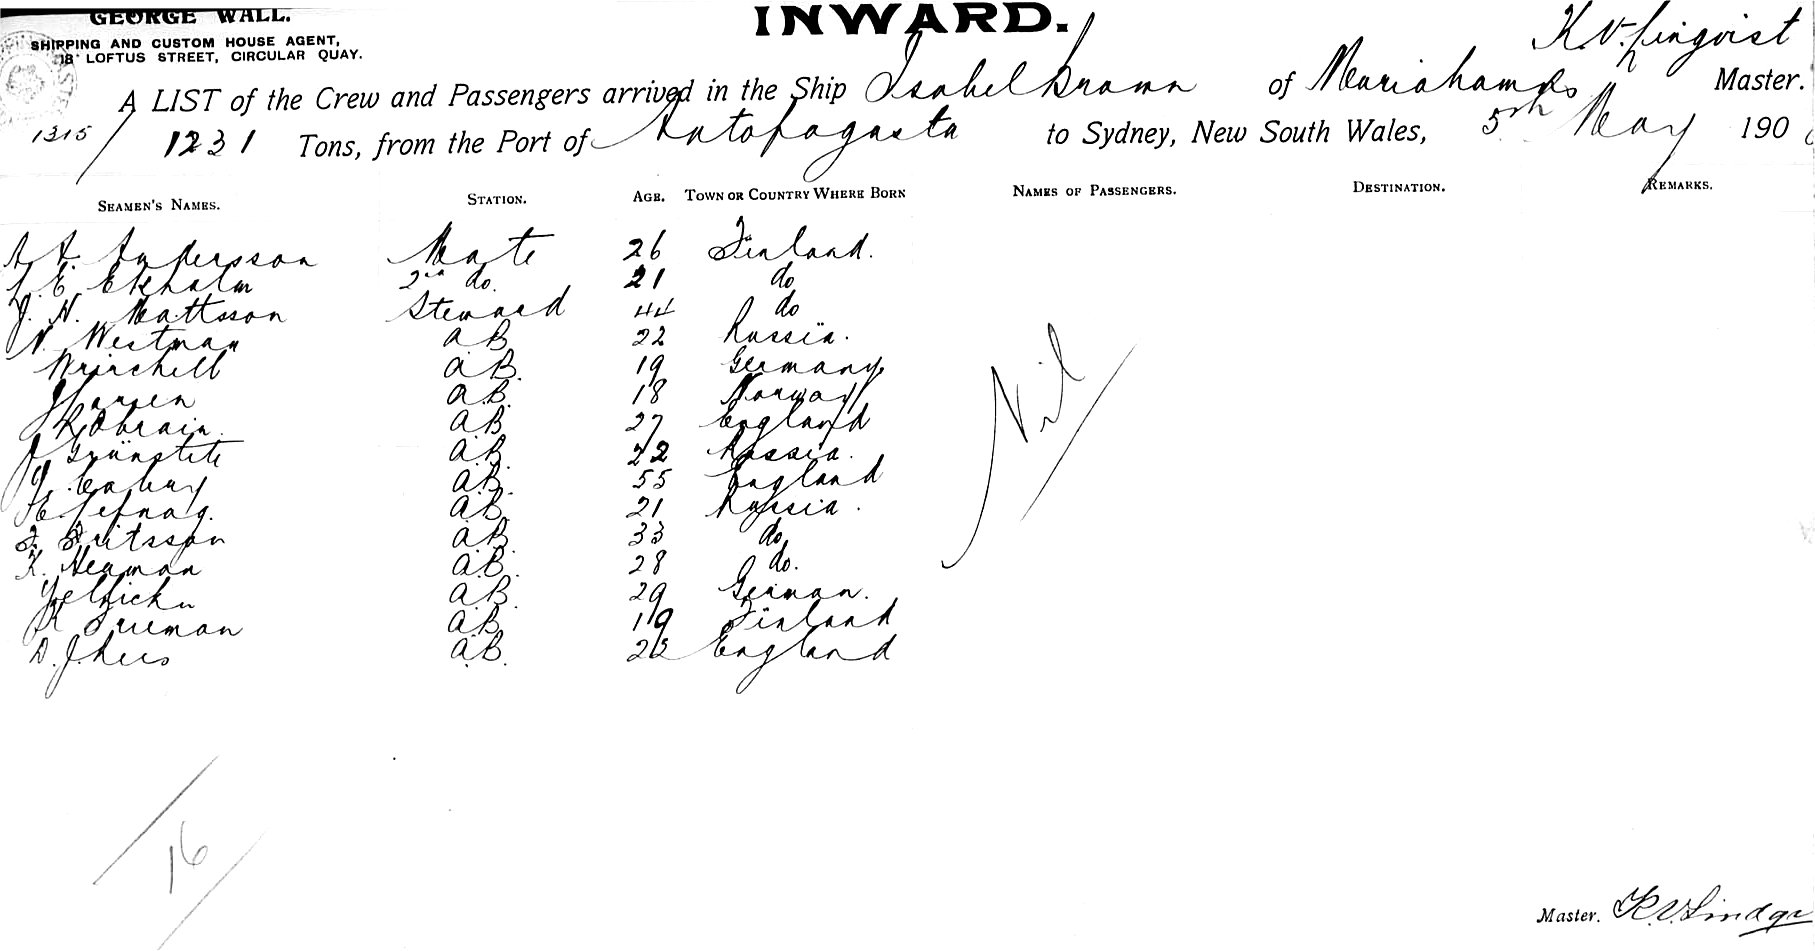 GEORGE WALL.
SHIPPING AND CUSTOM HOUSE AGENT,
18 LOFTUS STREET, CIRCULAR QUAY.
INWARD.
K. V. Linqvist
A LIST of the Crew and Passengers arrived in the Ship Isabel Brown of Mariehamn Master.
1315/1231 Tons, from the Port of Antofagasta to Sydney, New South Wales, 5th May 190
SEAMEN'S NAMES. STATION. AGE. TOWN OR COUNTRY WHERE BORN NAMES OF PASSENGERS. DESTINATION. REMARKS.
A. A. Andersson Mate 26 Finland.
E. Ekholm 2nd do. 21 do
J. H. Mattsson Steward 44 do
N. Westman AB 22 Russia.
AB. 19 Germany
J Larsen AB. 18 Norway
R Obrain. AB. 27 England
J Grünstite AB. 22 Russia.
AB. 55 England
AB. 21 Russia.
F. Eritsson AB. 33 do
K. Hegman AB. 28 do.
AB. 29 German.
AB. 19 Finland
D. J. AB. 23 England
Nil
16
Master. K. V. Lindqv